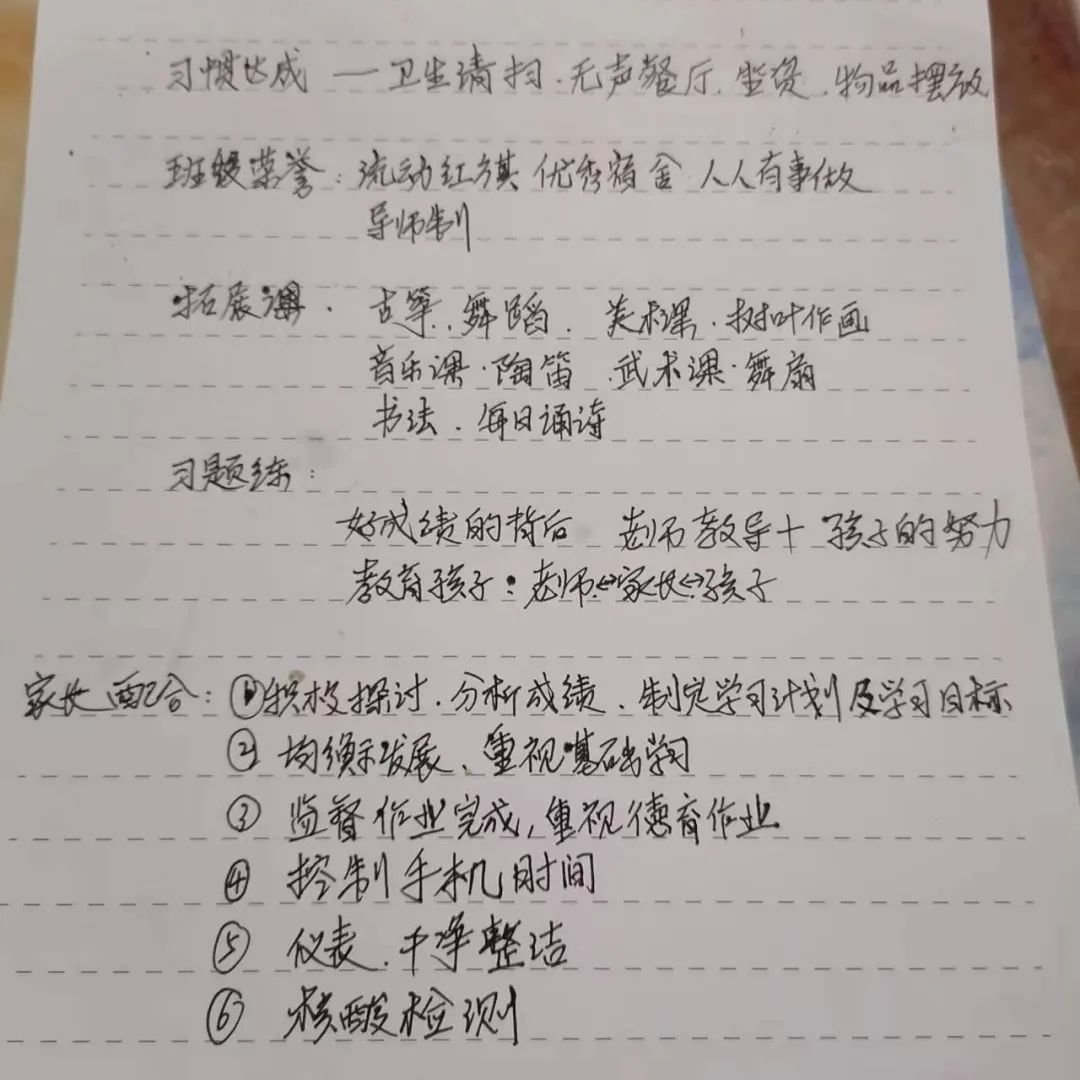 习惯达成 — 卫生清扫·无声餐厅.坐凳.物品摆放
班级荣誉:流动红旗 优秀宿舍 人人有事做
导师制
拓展课.古筝.舞蹈.美术课.树叶作画
音乐课·陶笛.武术课·舞扇
书法.每日诵诗
习题练:
好成绩的背后 老师教导+孩子的努力
教育孩子:老师⇔家长⇔孩子
家长配合:①积极探讨.分析成绩.制定学习计划及学习目标
② 均衡发展、重视基础学习
③ 监督作业完成,重视德育作业
④ 控制手机时间
⑤ 仪表.干净整洁
⑥ 核酸检测